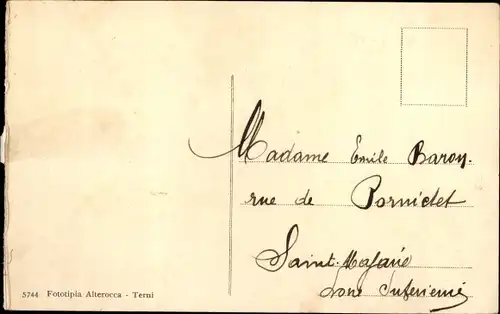 Madame Emile Baron.
rue de Pornichet
Saint-Nazaire
Loire Inférieure
5744 Fototipia Alterocca - Terni